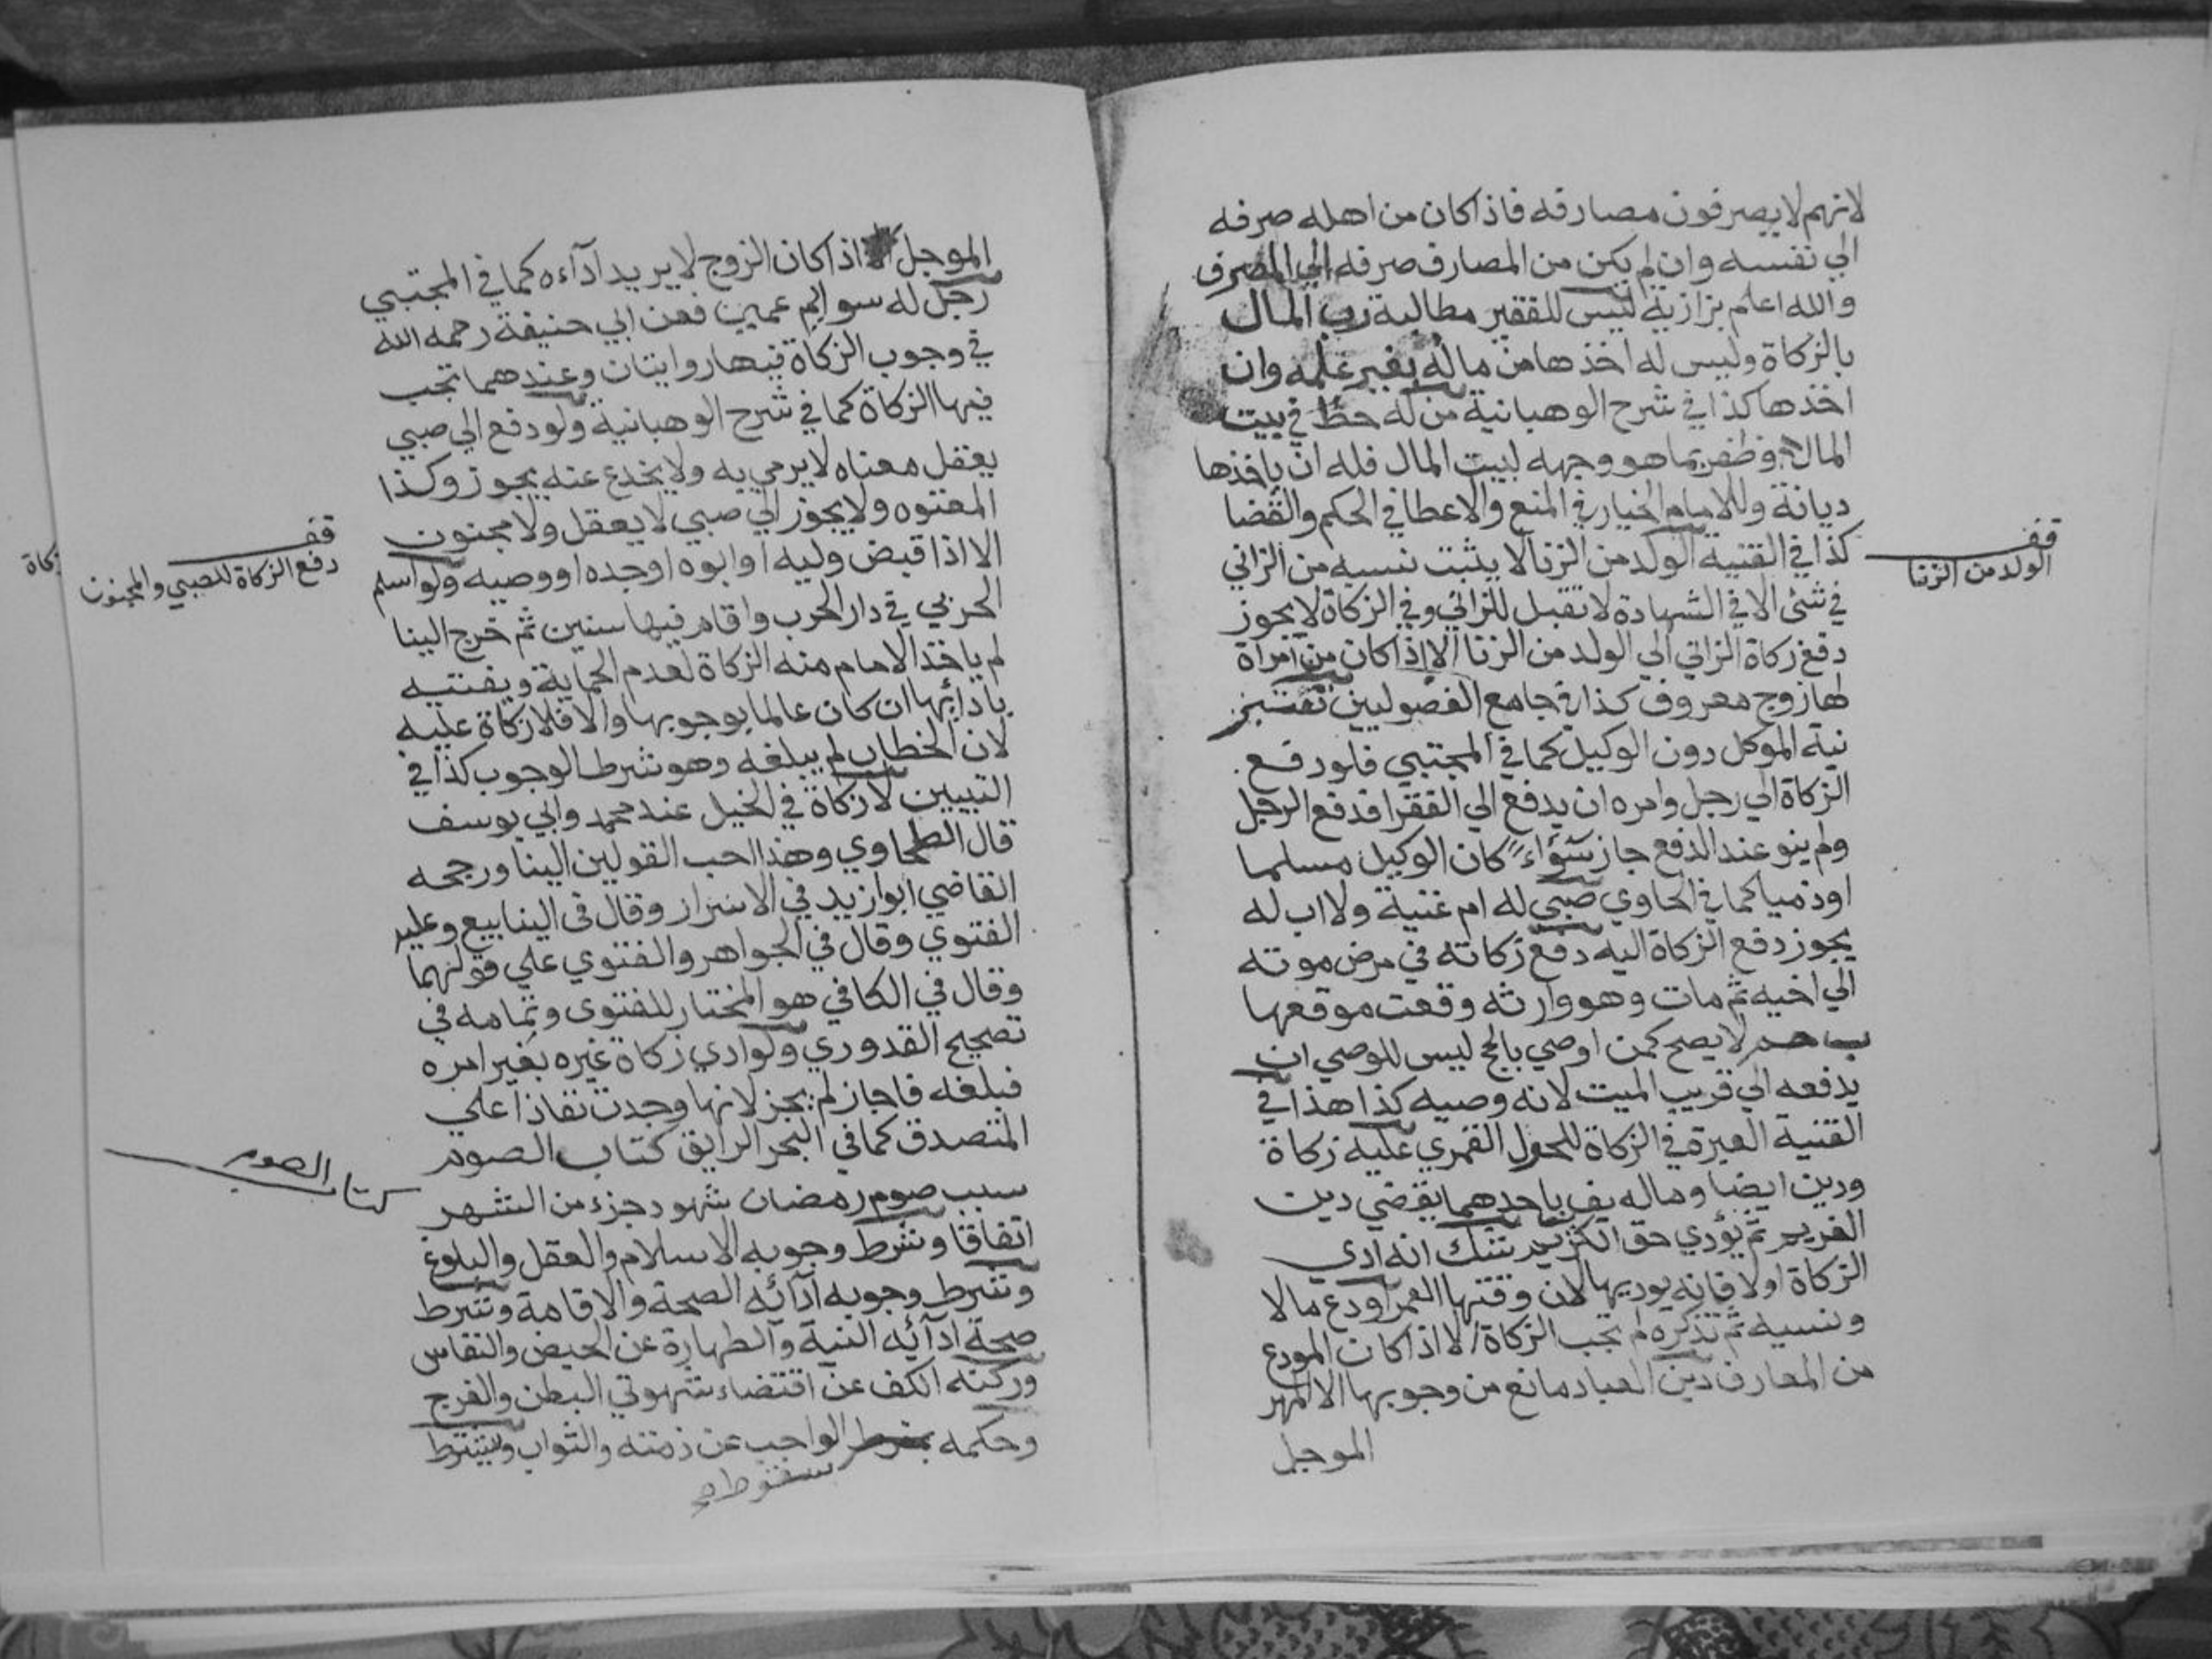 لانهم لا يصرفون مصارفه فاذا كان من اهله صرفه
الي نفسه وان لم يكن من المصارف صرفه الي المصرف
والله اعلم بزازية ليس للفقير مطالبة رب المال
بالزكاة وليس له اخذها من ماله بغير علمه وان
اخذها كذا في شرح الوهبانية من له حظ في بيت
المال وظفر بما هو وجهه لبيت المال فله ان ياخذها
ديانة وللامام الخيار في المنع والاعطا في الحكم والقضا
كذا في القنية الولد من الزنا لا يثبت نسبه من الزاني
في شئ الا في الشهادة لا تقبل للزاني وفي الزكاة لا يجوز
دفع زكاة الزاني الي الولد من الزنا الا اذا كان من امراة
لها زوج معروف كذا في جامع الفصولين تعتبر
نية الموكل دون الوكيل كما في المجتبي فلو دفع
الزكاة الي رجل وامره ان يدفع الي الفقرا فدفع الرجل
ولم ينو عند الدفع جاز سواء كان الوكيل مسلما
او ذميا كما في الحاوي صبي له ام غنية ولا اب له
يجوز دفع الزكاة اليه دفع زكاته في مرض موته
الي اخيه ثم مات وهو وارثه وقعت موقعها
لا يصح كمن اوصي بالحج ليس للوصي ان
يدفعه الي قريب الميت لانه وصيه كذا هذا في
القنية العبرة في الزكاة للحول القمري عليه زكاة
ودين ايضا وماله يف باحدهما يقضي دين
الغريم ثم يؤدي حق الكريم شك انه ادي
الزكاة اولا فانه يوديها لان وقتها العمر اودع مالا
ونسيه ثم تذكره لم تجب الزكاة الا اذا كان المودع
من المعارف دين العباد مانع من وجوبها الا المهر
الموجل
قف
الولد من الزنا
الموجل اذا كان الزوج لا يريد آداءه كما في المجتبي
رجل له سوايم عمين فعن ابي حنيفة رحمه الله
في وجوب الزكاة فيها روايتان وعندهما تجب
فيها الزكاة كما في شرح الوهبانية ولو دفع الي صبي
يعقل معناه لا يرمي به ولا يخدع عنه يجوز وكذا
المعتوه ولا يجوز الي صبي لا يعقل ولا مجنون
الا اذا قبض وليه او ابوه او جده او وصيه ولو اسلم
الحربي في دار الحرب واقام فيها سنين ثم خرج الينا
لم ياخذ الامام منه الزكاة لعدم الحماية ويفتيه
بادائها ان كان عالما بوجوبها والا فلا زكاة عليه
لان الخطاب لم يبلغه وهو شرط الوجوب كذا في
التبيين لا زكاة في الخيل عند محمد وابي يوسف
قال الطحاوي وهذا احب القولين الينا ورجحه
القاضي ابوازيد في الاسرار وقال في الينابيع وعليه
الفتوي وقال في الجواهر والفتوي علي قولهما
وقال في الكافي هو المختار للفتوى وتمامه في
تصحيح القدوري ولو ادي زكاة غيره بغير امره
فبلغه فاجاز لم يجز لانها وجدت نفاذا علي
المتصدق كما في البحر الرايق كتاب الصوم
سبب صوم رمضان شهود جزء من الشهر
اتفاقا وشرط وجوبه الاسلام والعقل والبلوغ
وشرط وجوبه ادآئه الصحة والاقامة وشرط
صحة ادآئه النية والطهارة عن الحيض والنفاس
وركنه الكف عن اقتضاء شهوتي البطن والفرج
وحكمه الواجب عن ذمته والثواب ويشترط
سقوط صح
قف
دفع الزكاة للصبي والمجنون
كتاب الصوم
زكاة